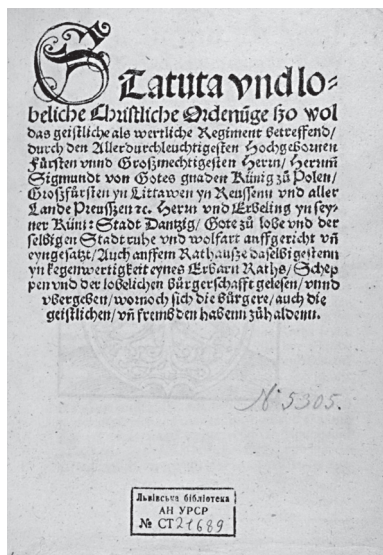 Statuta vnd lo-
beliche Christliche Ordenũge ßo wol
das geistliche als wertliche Regiment betreffend/
durch den Allerdurchleuchtigesten Hochgebornen
Fürsten vnnd Großmechtigesten Herrn/ Herrnn
Sigmundt von Gotes gnaden Künig zů Polen/
Großfürsten yn Littawen yn Reussenn vnd aller
Lande Preussßen ꝛc. Herrn vnd Erbeling yn sey-
ner Küni: Stadt Dantzig/ Gote zů lobe vnd der
selbigen Stadt ruhe vnd wolfart auffgericht vñ
eyngesatz/ Auch auffem Rathaußze daselbigestenn
yn kegenwertigkeit eynes Erbarn Raths/ Schep
pen vnd der lobelichen bürgerschafft gelesen/ vnnd
vbergeben/ wornoch sich die bürgere/ auch die
geistlichen/ vñ frembden habenn zůhaldenn.
N 5305.
Львівська бібліотека
АН УРСР
№ СТ 21689